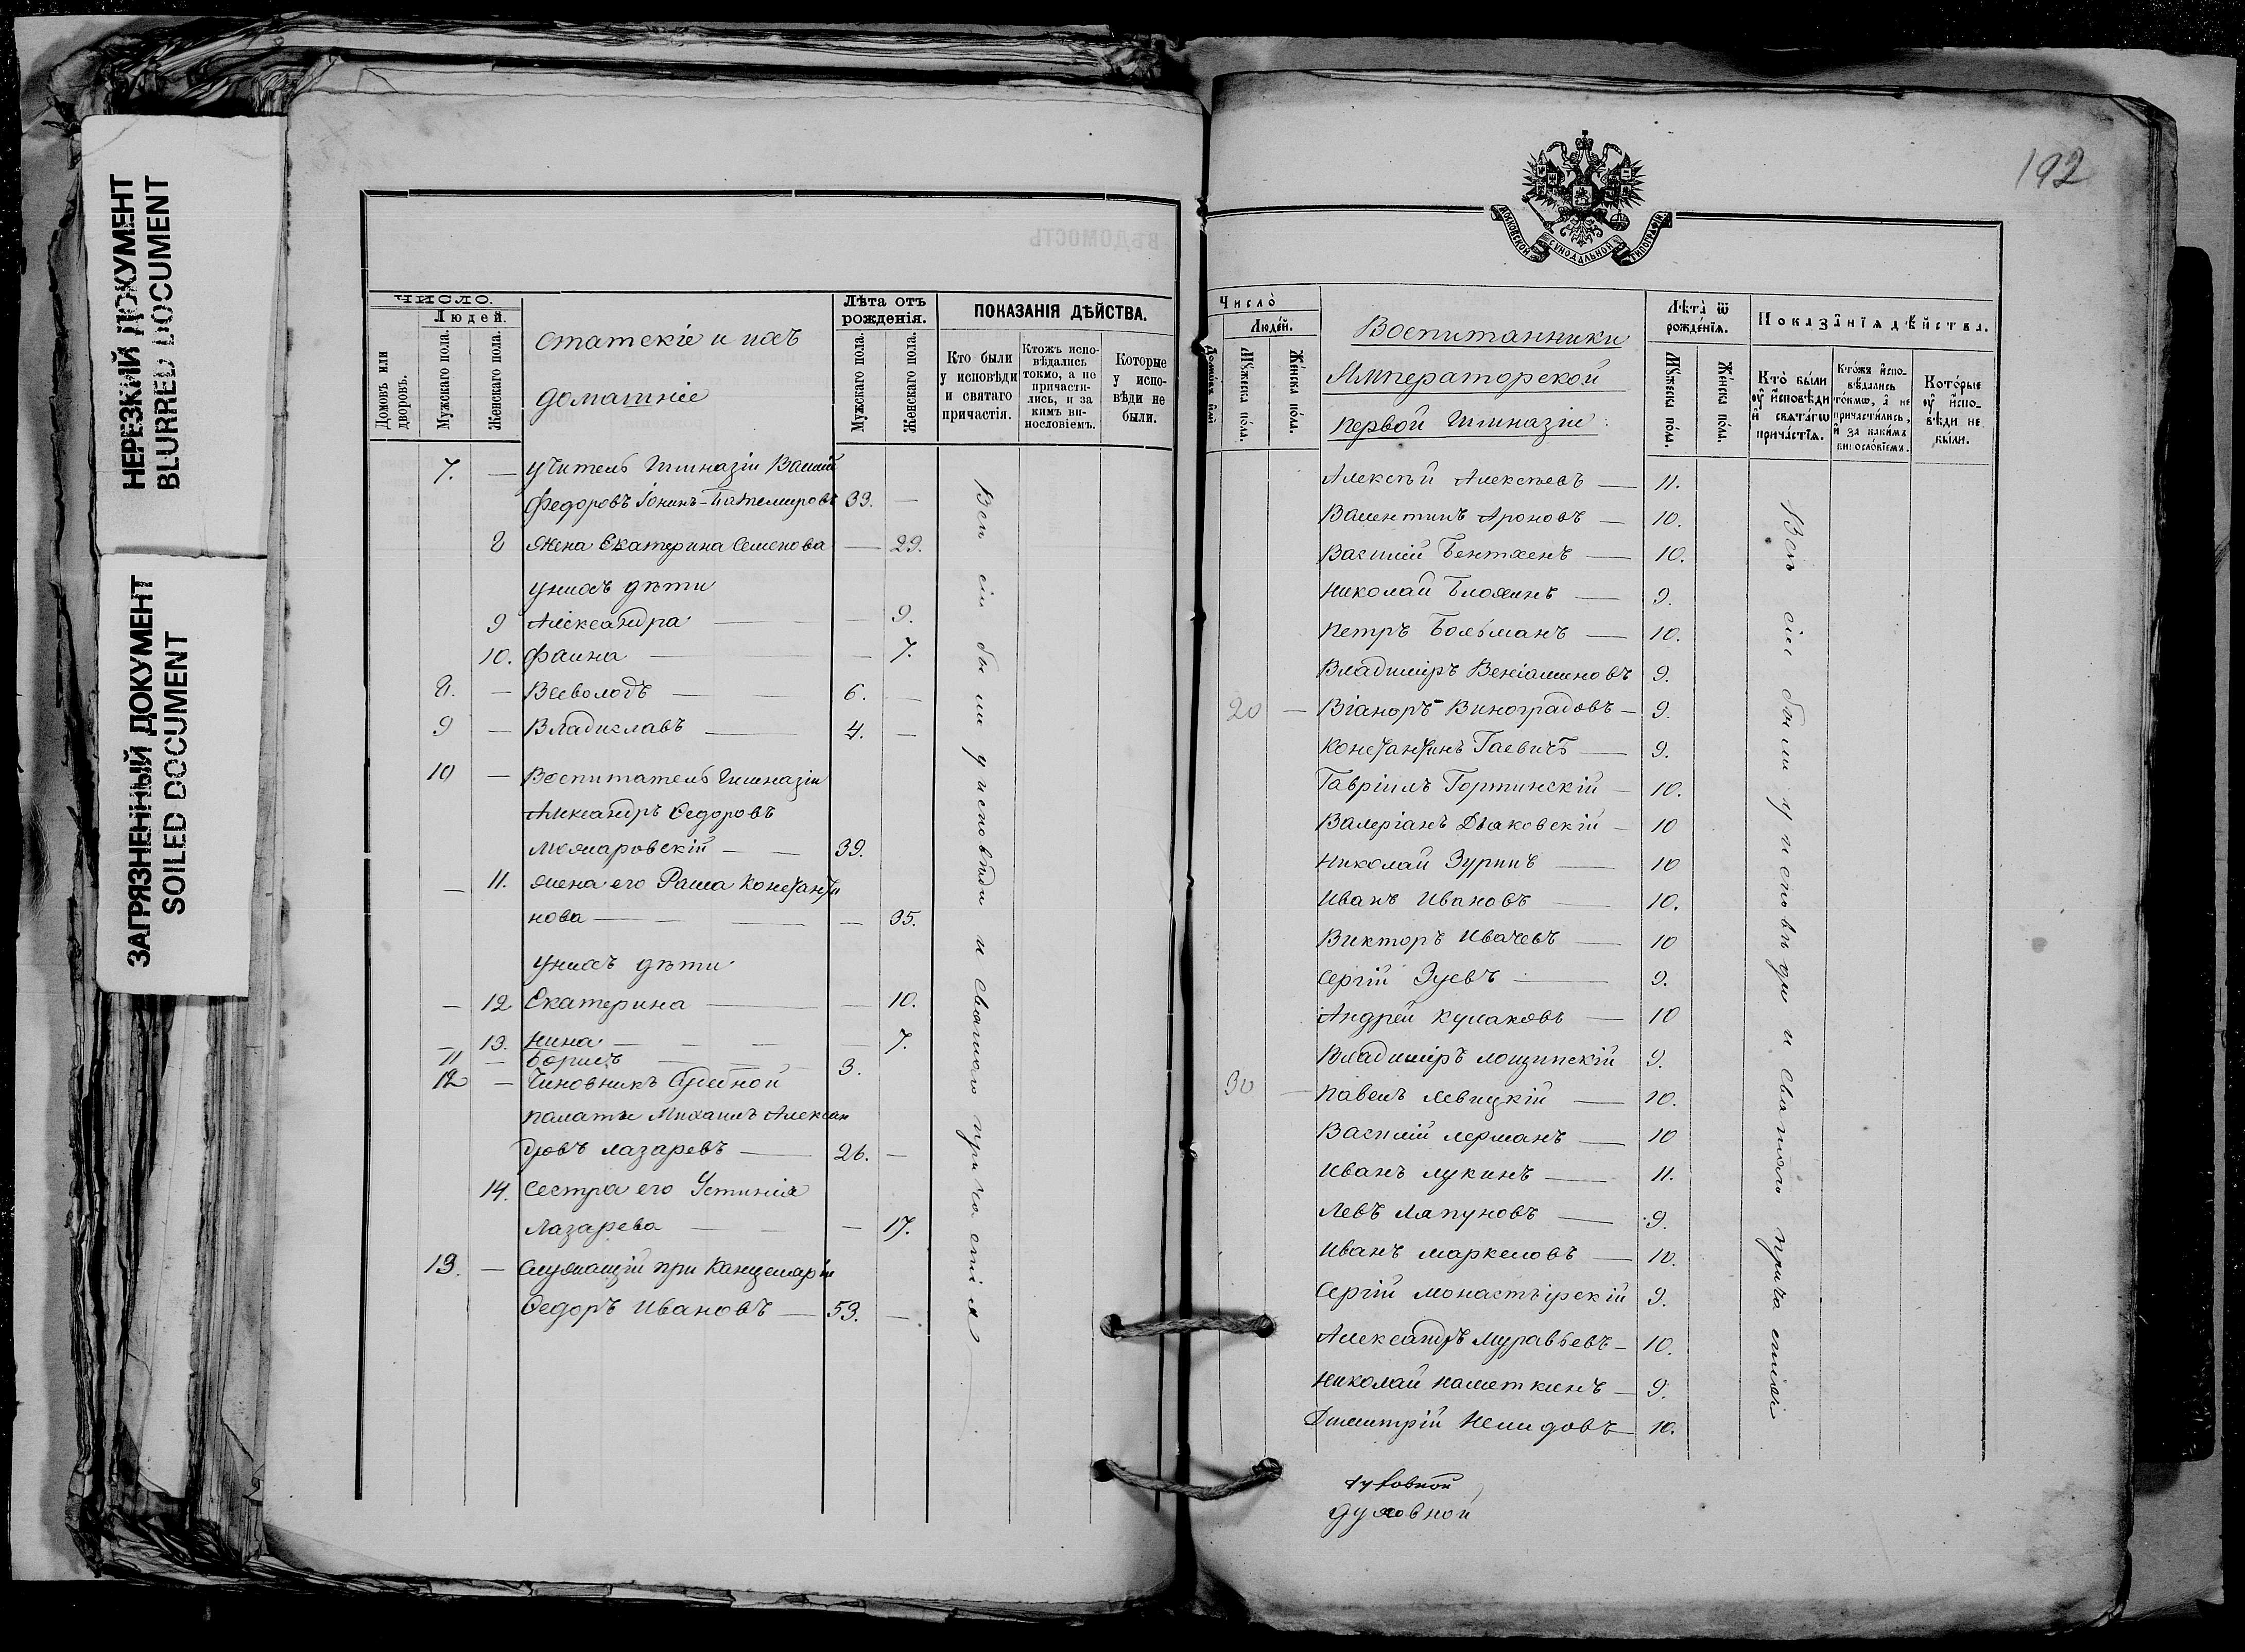 НЕРЕЗКИЙ ДОКУМЕНТ
BLURRED DOCUMENT
ЗАГРЯЗНЕННЫЙ ДОКУМЕНТ
SOILED DOCUMENT
ЧИСЛО.
Людей.
Домовъ или дворовъ.
Мужскаго пола.
Женскаго пола.
статскіе и ихъ
домашніе
Лѣта отъ
рожденія.
Мужскаго пола.
Женскаго пола.
ПОКАЗАНІЯ ДѢЙСТВА.
Кто были
у исповѣди
и святаго
причастія.
Ктожъ испо-
вѣдались
токмо, а не
причасти-
лись, и за
кимъ ви-
нословіемъ.
Которые
у испо-
вѣди не
были.
7. — учитель Гимназіи Василій
Федоровъ Іонинъ- 33. —
8 Жена Екатерина Семенова — 29.
у нихъ дѣти
9 Александра — — 9.
10. Фаина — — 7.
8. — Всеволодъ — 6. —
9 — Владиславъ — 4. —
10 — Воспитатель Гимназіи
Александръ Ѳедоровъ
39.
— 11. жена его Раиса Константи
нова — — 35.
у нихъ дѣти
— 12 Екатерина — — 10.
— 13. Нина — — 7.
11 — Борисъ — 3.
12 — Чиновникъ Судебной
палаты Михаилъ Алексан
дровъ Лазаревъ — 26. —
14. Сестра его Устинія
Лазарева — — 17.
13. — служащій при Канцеляріи
Ѳедоръ Ивановъ — 53. —
Всѣ сіи были у исповѣди и святаго причастія
192
МОСКОВСКОЙ СѴНОДАЛЬНОЙ ТИПОГРАФІИ
Число̀
Люде́й.
Домо́въ и҆лѝ
Мꙋ́жеска по́ла.
Же́нска по́ла.
Воспитанники
Императорской
первой Гимназіи:
Лѣ́та ѿ
рожде́нїѧ.
Мꙋ́жеска по́ла.
Же́нска по́ла.
Показа̑нїѧ дѣ́йства.
Кто̀ бы́ли
ᲂу҆ и҆сповѣ́ди
и҆ свѧта́гѡ
прича́стїѧ.
Кто́жъ и҆спо-
вѣ́дались
то́кмѡ, а҆ не
причасти́лись,
и҆ за каки́мъ
виносло́вїемъ.
Кото́рые
ᲂу҆ и҆спо-
вѣ́ди не
бы́ли.
Алексѣй Алексѣевъ — 11.
Валентинъ Ароновъ — 10.
Василій Бентхенъ — 10.
Николай Блохинъ — 9.
Петръ Больманъ — 10.
Владиміръ Веніаминовъ 9.
20 — Віаноръ Виноградовъ — 9.
Константинъ Гаевичъ — 9.
Гавріилъ Гортинскій — 10.
Валеріанъ Дьяковскій — 10
Николай Зуринъ — 10
Иванъ Ивановъ — 10.
Викторъ Ивачевъ — 10
Сергій Зуевъ — 9.
Андрей Кулаковъ — 10
Владиміръ Лощинскій 9.
30 — Павелъ Левицкій — 10.
Василій Лерманъ — 10
Иванъ Лукинъ — 11.
Левъ Ляпуновъ — 9.
Иванъ Маркеловъ — 10.
Сергій Монастырскій 9.
Александръ Муравьевъ — 10.
Николай Наметкинъ — 9.
Дмитрій Нелидовъ — 10.
Всѣ сіи были у исповѣди и святаго причастія
духовной
духовной